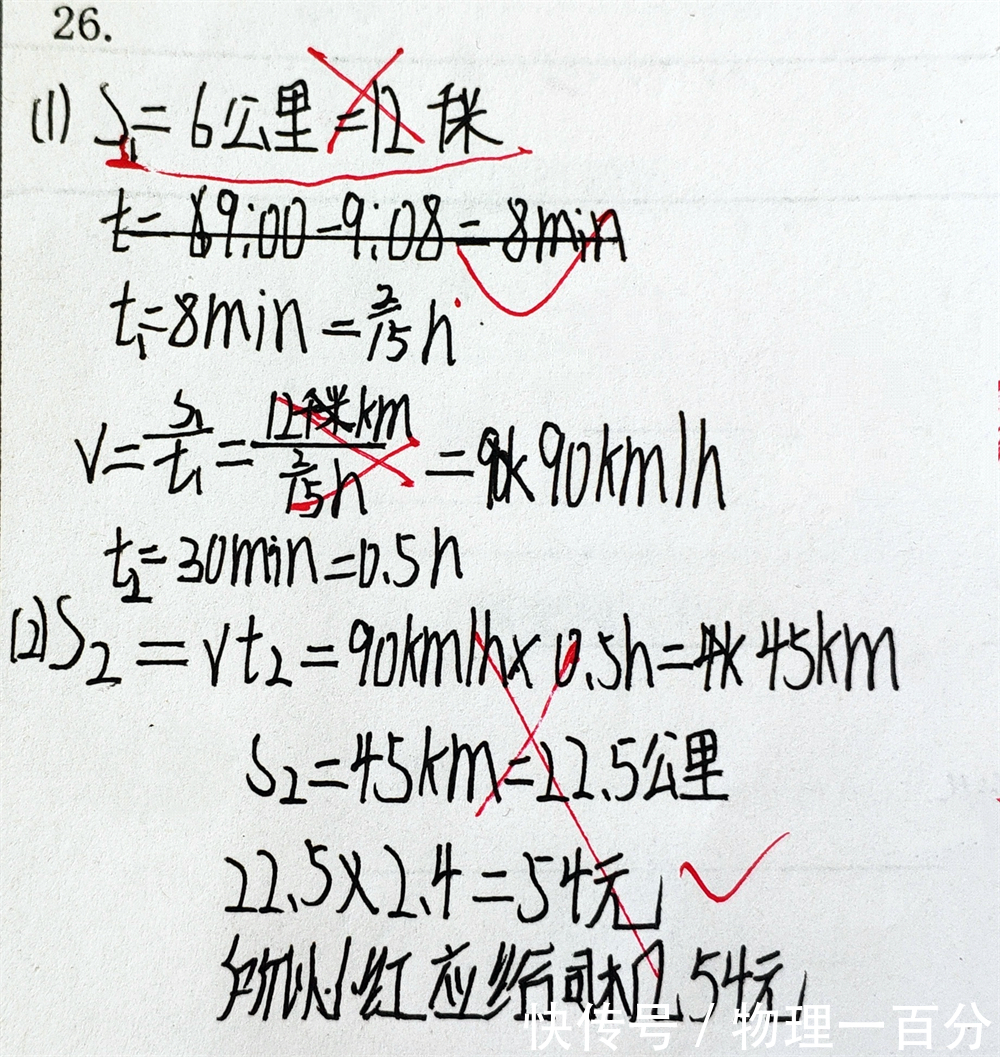 26.
(1) S₁=6公里=12千米
t=89:00-9:08=8min
t₁=8min=2/15h
V=S₁/t₁=12千米km/(2/15h)=90km/h
t₂=30min=0.5h
(2)S₂=vt₂=90km/h×0.5h=45km
S₂=45km=22.5公里
22.5×2.4=54元
所以小红应给司机54元
快传号/物理一百分